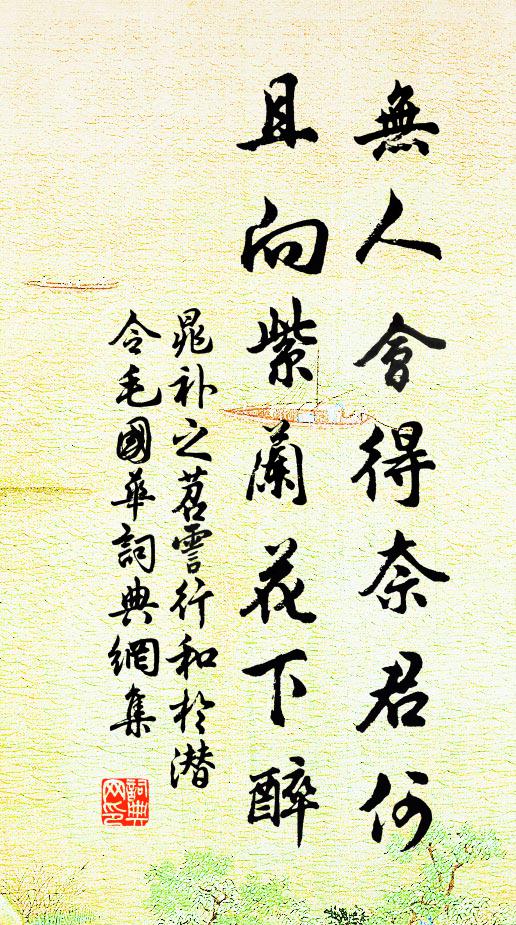 無人會得奈君何
且向紫蘭花下醉
晁补之苕霅行和於潜
令毛國華詞典網集
詞典
网印